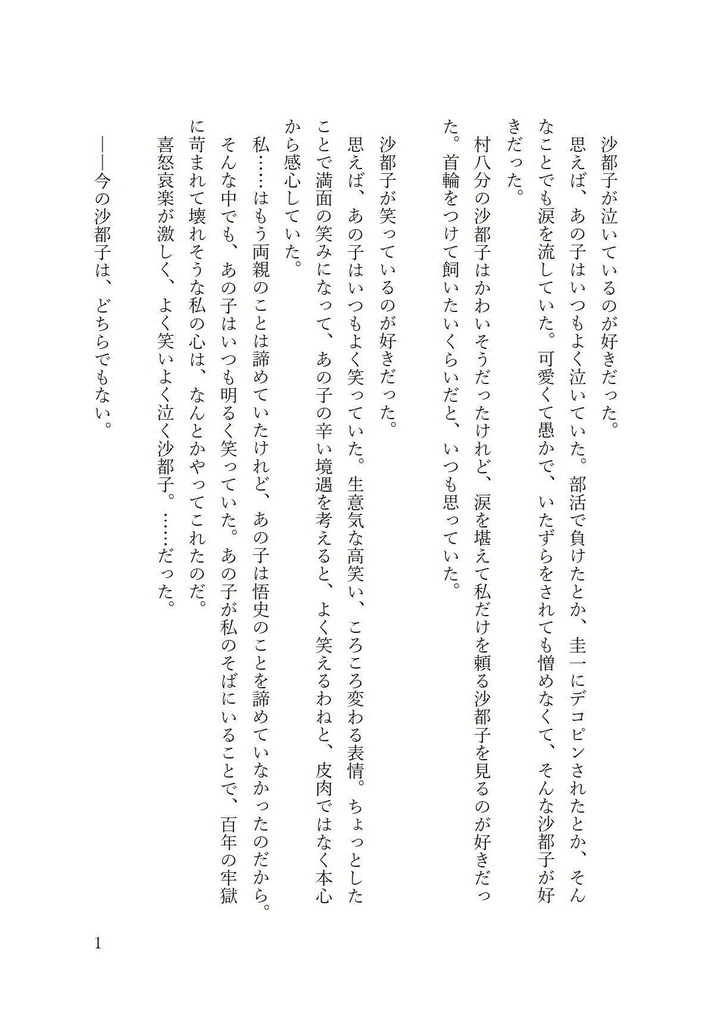 沙都子が泣いているのが好きだった。
思えば、あの子はいつもよく泣いていた。部活で負けたとか、圭一にデコピンされたとか、そん
なことでも涙を流していた。可愛くて愚かで、いたずらをされても憎めなくて、そんな沙都子が好
きだった。
村八分の沙都子はかわいそうだったけれど、涙を堪えて私だけを頼る沙都子を見るのが好きだっ
た。首輪をつけて飼いたいくらいだと、いつも思っていた。
沙都子が笑っているのが好きだった。
思えば、あの子はいつもよく笑っていた。生意気な高笑い、ころころ変わる表情。ちょっとした
ことで満面の笑みになって、あの子の辛い境遇を考えると、よく笑えるわねと、皮肉ではなく本心
から感心していた。
私……はもう両親のことは諦めていたけれど、あの子は悟史のことを諦めていなかったのだから。
そんな中でも、あの子はいつも明るく笑っていた。あの子が私のそばにいることで、百年の牢獄
に苛まれて壊れそうな私の心は、なんとかやってこれたのだ。
喜怒哀楽が激しく、よく笑いよく泣く沙都子。……だった。
――今の沙都子は、どちらでもない。
1